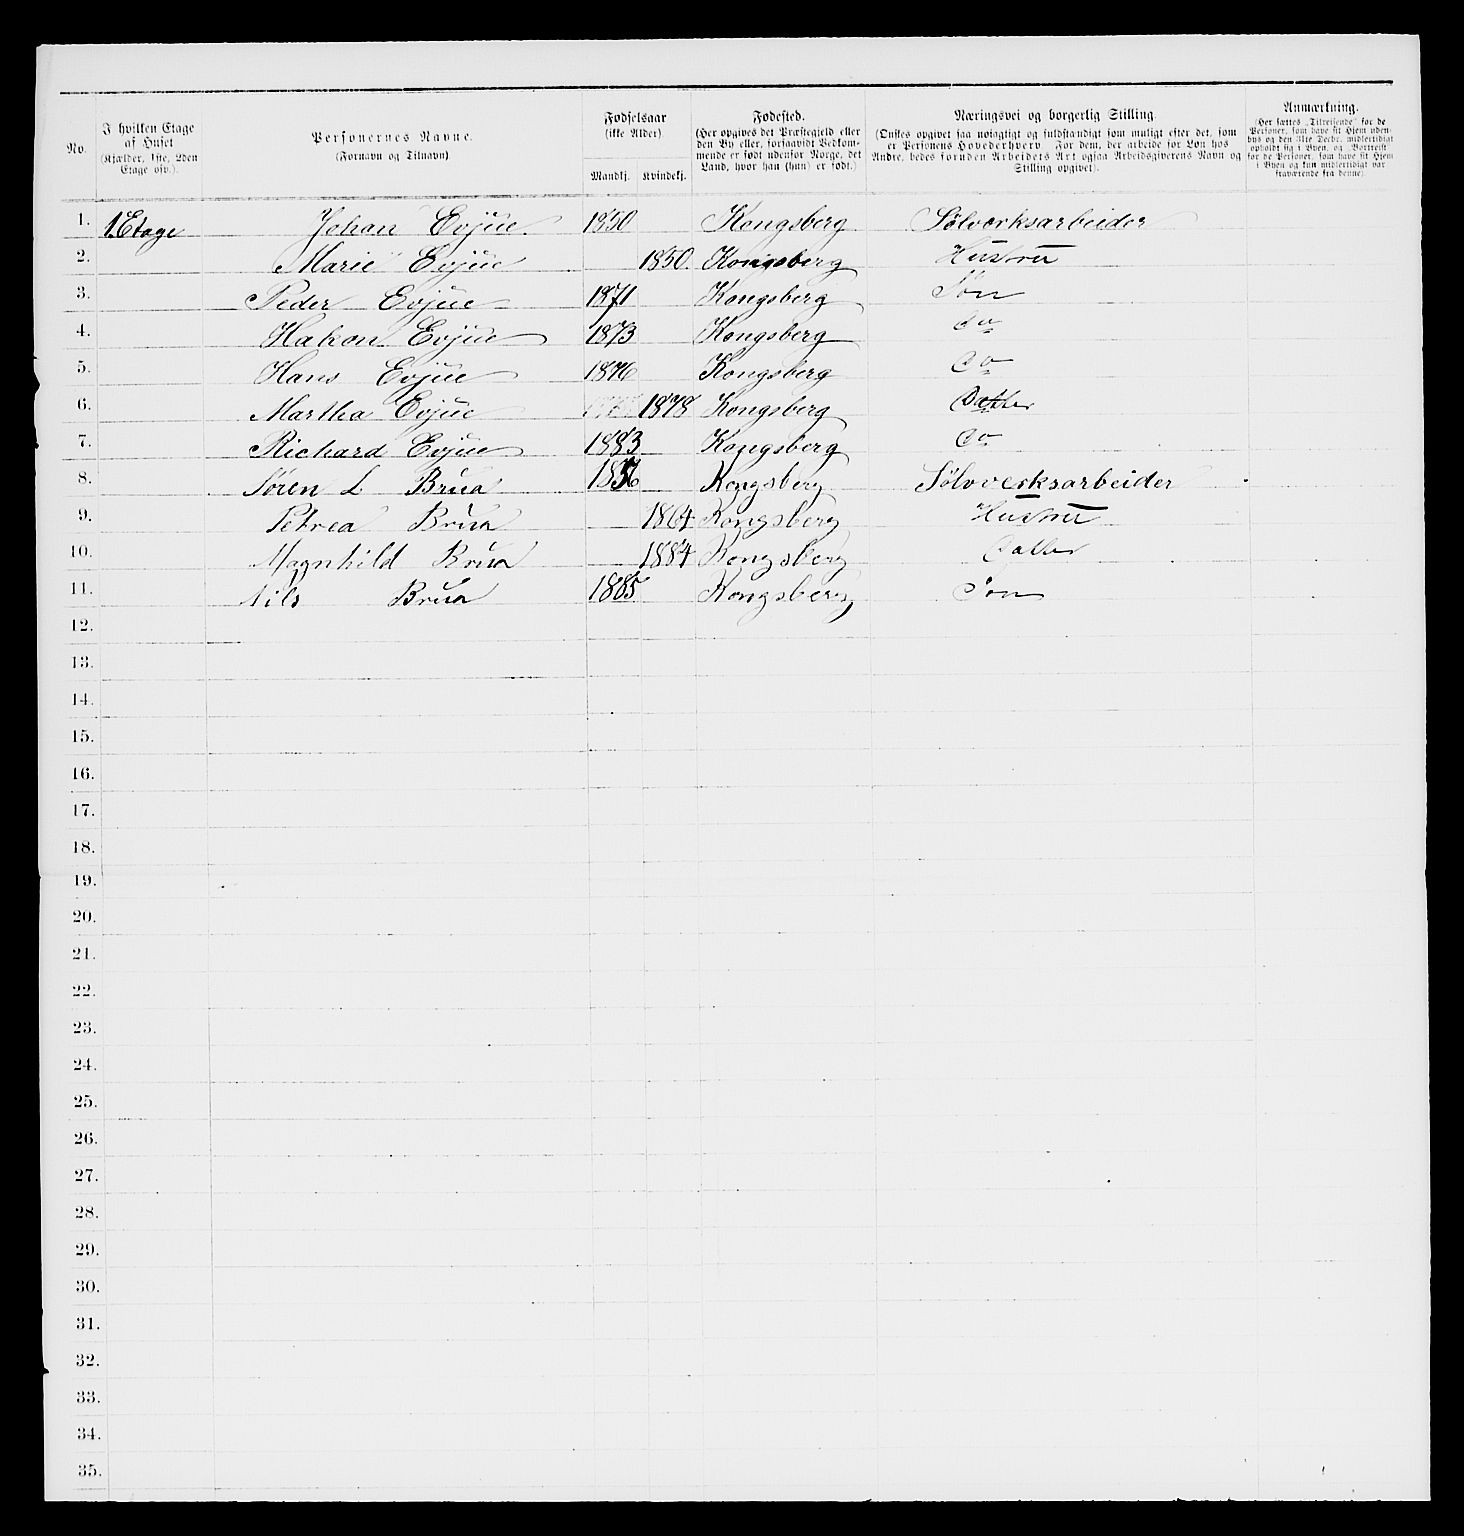 No.
I hvilken Etage af Huset (Kjælder, 1ste, 2den Etage osv.).
Personernes Navne. (Fornavn og Tilnavn)
Fødselsaar (ikke Alder)
Mandkj. Kvindekj.
Fødested. (Her opgives det Præstegjeld eller den By eller, forsaavidt Vedkommende er født udenfor Norge, det Land, hvor han (hun) er født.)
Næringsvei og borgerlig Stilling. (Ønskes opgivet saa nøiagtigt og fuldstændigt som muligt efter det, som er Personens Hovederhverv. For dem, der arbeide for Løn hos Andre, bedes foruden Arbeidets Art ogsaa Arbeidsgiverens Navn og Stilling opgivet).
Anmærkning. (Her sættes „Tilreisende" for de Personer, som have sit Hjem udenbys og den 31te Decbr. midlertidigt opholdt sig i Byen, og „Bortreist" for de Personer, som have sit Hjem i Byen og kun midlertidigt var fraværende fra denne).
1. 1.Etage Johan Evjue. 1850 Kongsberg Sølvverksarbeider
2. Marie Evjue 1850. Kongsberg Hustru
3. Peder Evjue 1871 Kongsberg Søn
4. Hakon Evjue 1873 Kongsberg do
5. Hans Evjue 1876 Kongsberg do
6. Martha Evjue 1878 Kongsberg Datter
7. Richard Evjue 1883 Kongsberg do
8. Søren L Brua Kongsberg Sølvverksarbeider
9. Petrea Brua 1864 Kongsberg Hustru
10. Magnhild Brua 1884 Kongsberg Datter
11. Nils Brua 1885 Kongsberg Søn
12.
13.
14.
15.
16.
17.
18.
19.
20.
21.
22.
23.
24.
25.
26.
27.
28.
29.
30.
31.
32.
33.
34.
35.